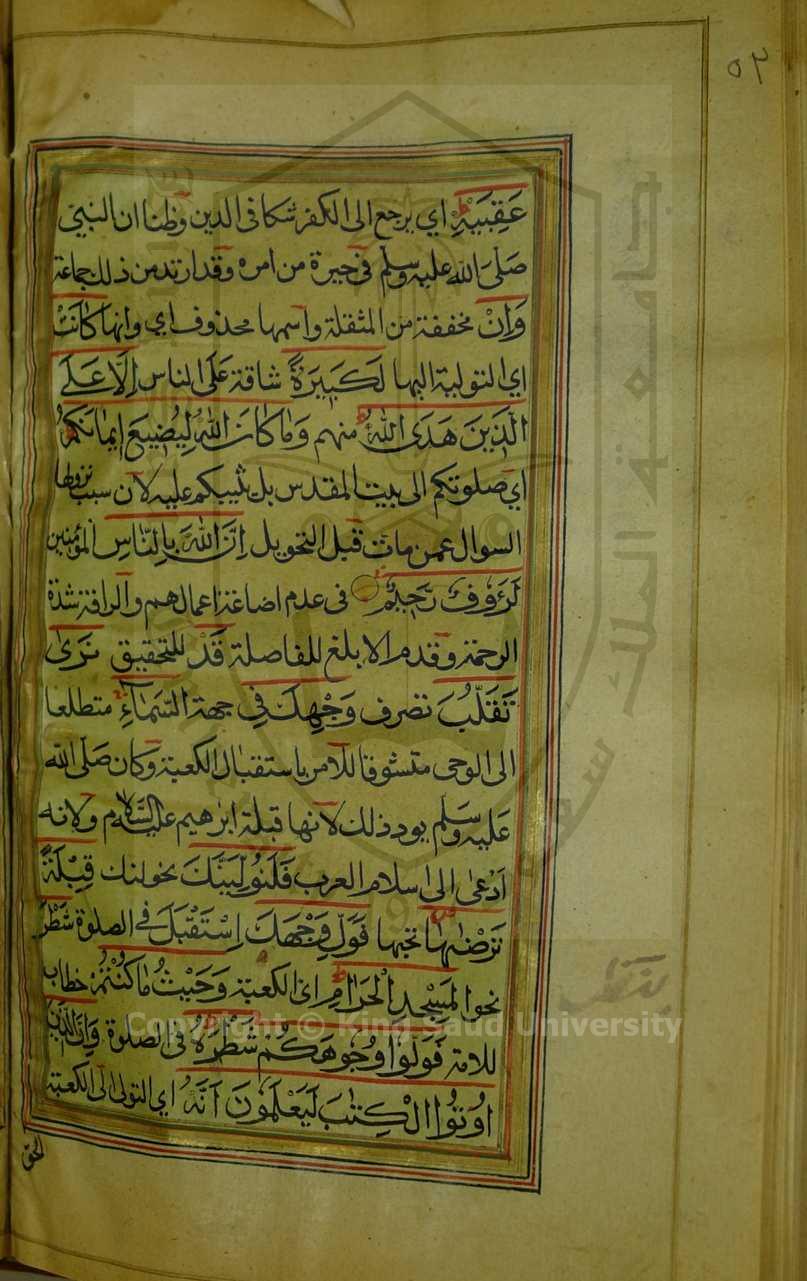 ٥٢
عَقِبَيْهِ اي يرجع الى الكفر شكا فى الدين وظنا ان النبى
صَلَّى الله عليه وسلم فى حيرة من امره وقد ارتد من ذلك جماعة
وَاِنْ مخففة من المثقلة واسمها محذوف اي وانها كَانَتْ
اي التولية اليها لَكَبِيرَةً شاقة عَلَى الناس اِلَّا عَلَى
الَّذِينَ هَدَى اللهُ منهم وَمَا كَانَ اللهُ لِيُضِيعَ اِيمَانَكُمْ
اي صلوتكم الى بيت المقدس بل يثيبكم عليه لان سبب نزولها
السوال عمن مات قبل التحويل اِنَّ اللهَ بِالنَّاسِ المؤمنين
لَرَؤُفٌ رَحِيمٌ فى عدم اضاعة اعمالهم والرافة شدة
الرحمة وقدم الابلغ للفاصلة قَدْ للتحقيق نَرَى
تَقَلُّبَ تصرف وَجْهِكَ فِى جهة السَّمَاءِ متطلعا
الى الوحى متشوقا للامر باستقبال الكعبة وكان صَلَّى الله
عَلَيْه وسَلَّم يود ذلك لانها قبلة ابرهيم عليه السَّلام ولانه
اَدْعى الى اسلام العرب فَلَنُوَلِّيَنَّكَ نحولنك قِبْلَةً
تَرْضٰيهَا تحبها فَوَلِّ وَجْهَكَ اِسْتَقْبِلْ فى الصلوة شَطْرَ
نحو المَسْجِدِ الْحَرَامِ اى الكعبة وَحَيْثُ مَا كُنْتُمْ خطاب
للامة فَوَلُّوا وُجُوهَكُمْ شَطْرَهُ فى الصلوة وَاِنَّ الَّذِينَ
اُوتُوا الْكِتٰبَ لَيَعْلَمُونَ اَنَّهُ اي التولى الى الكعبة
الحق
Copyright © King Saud University